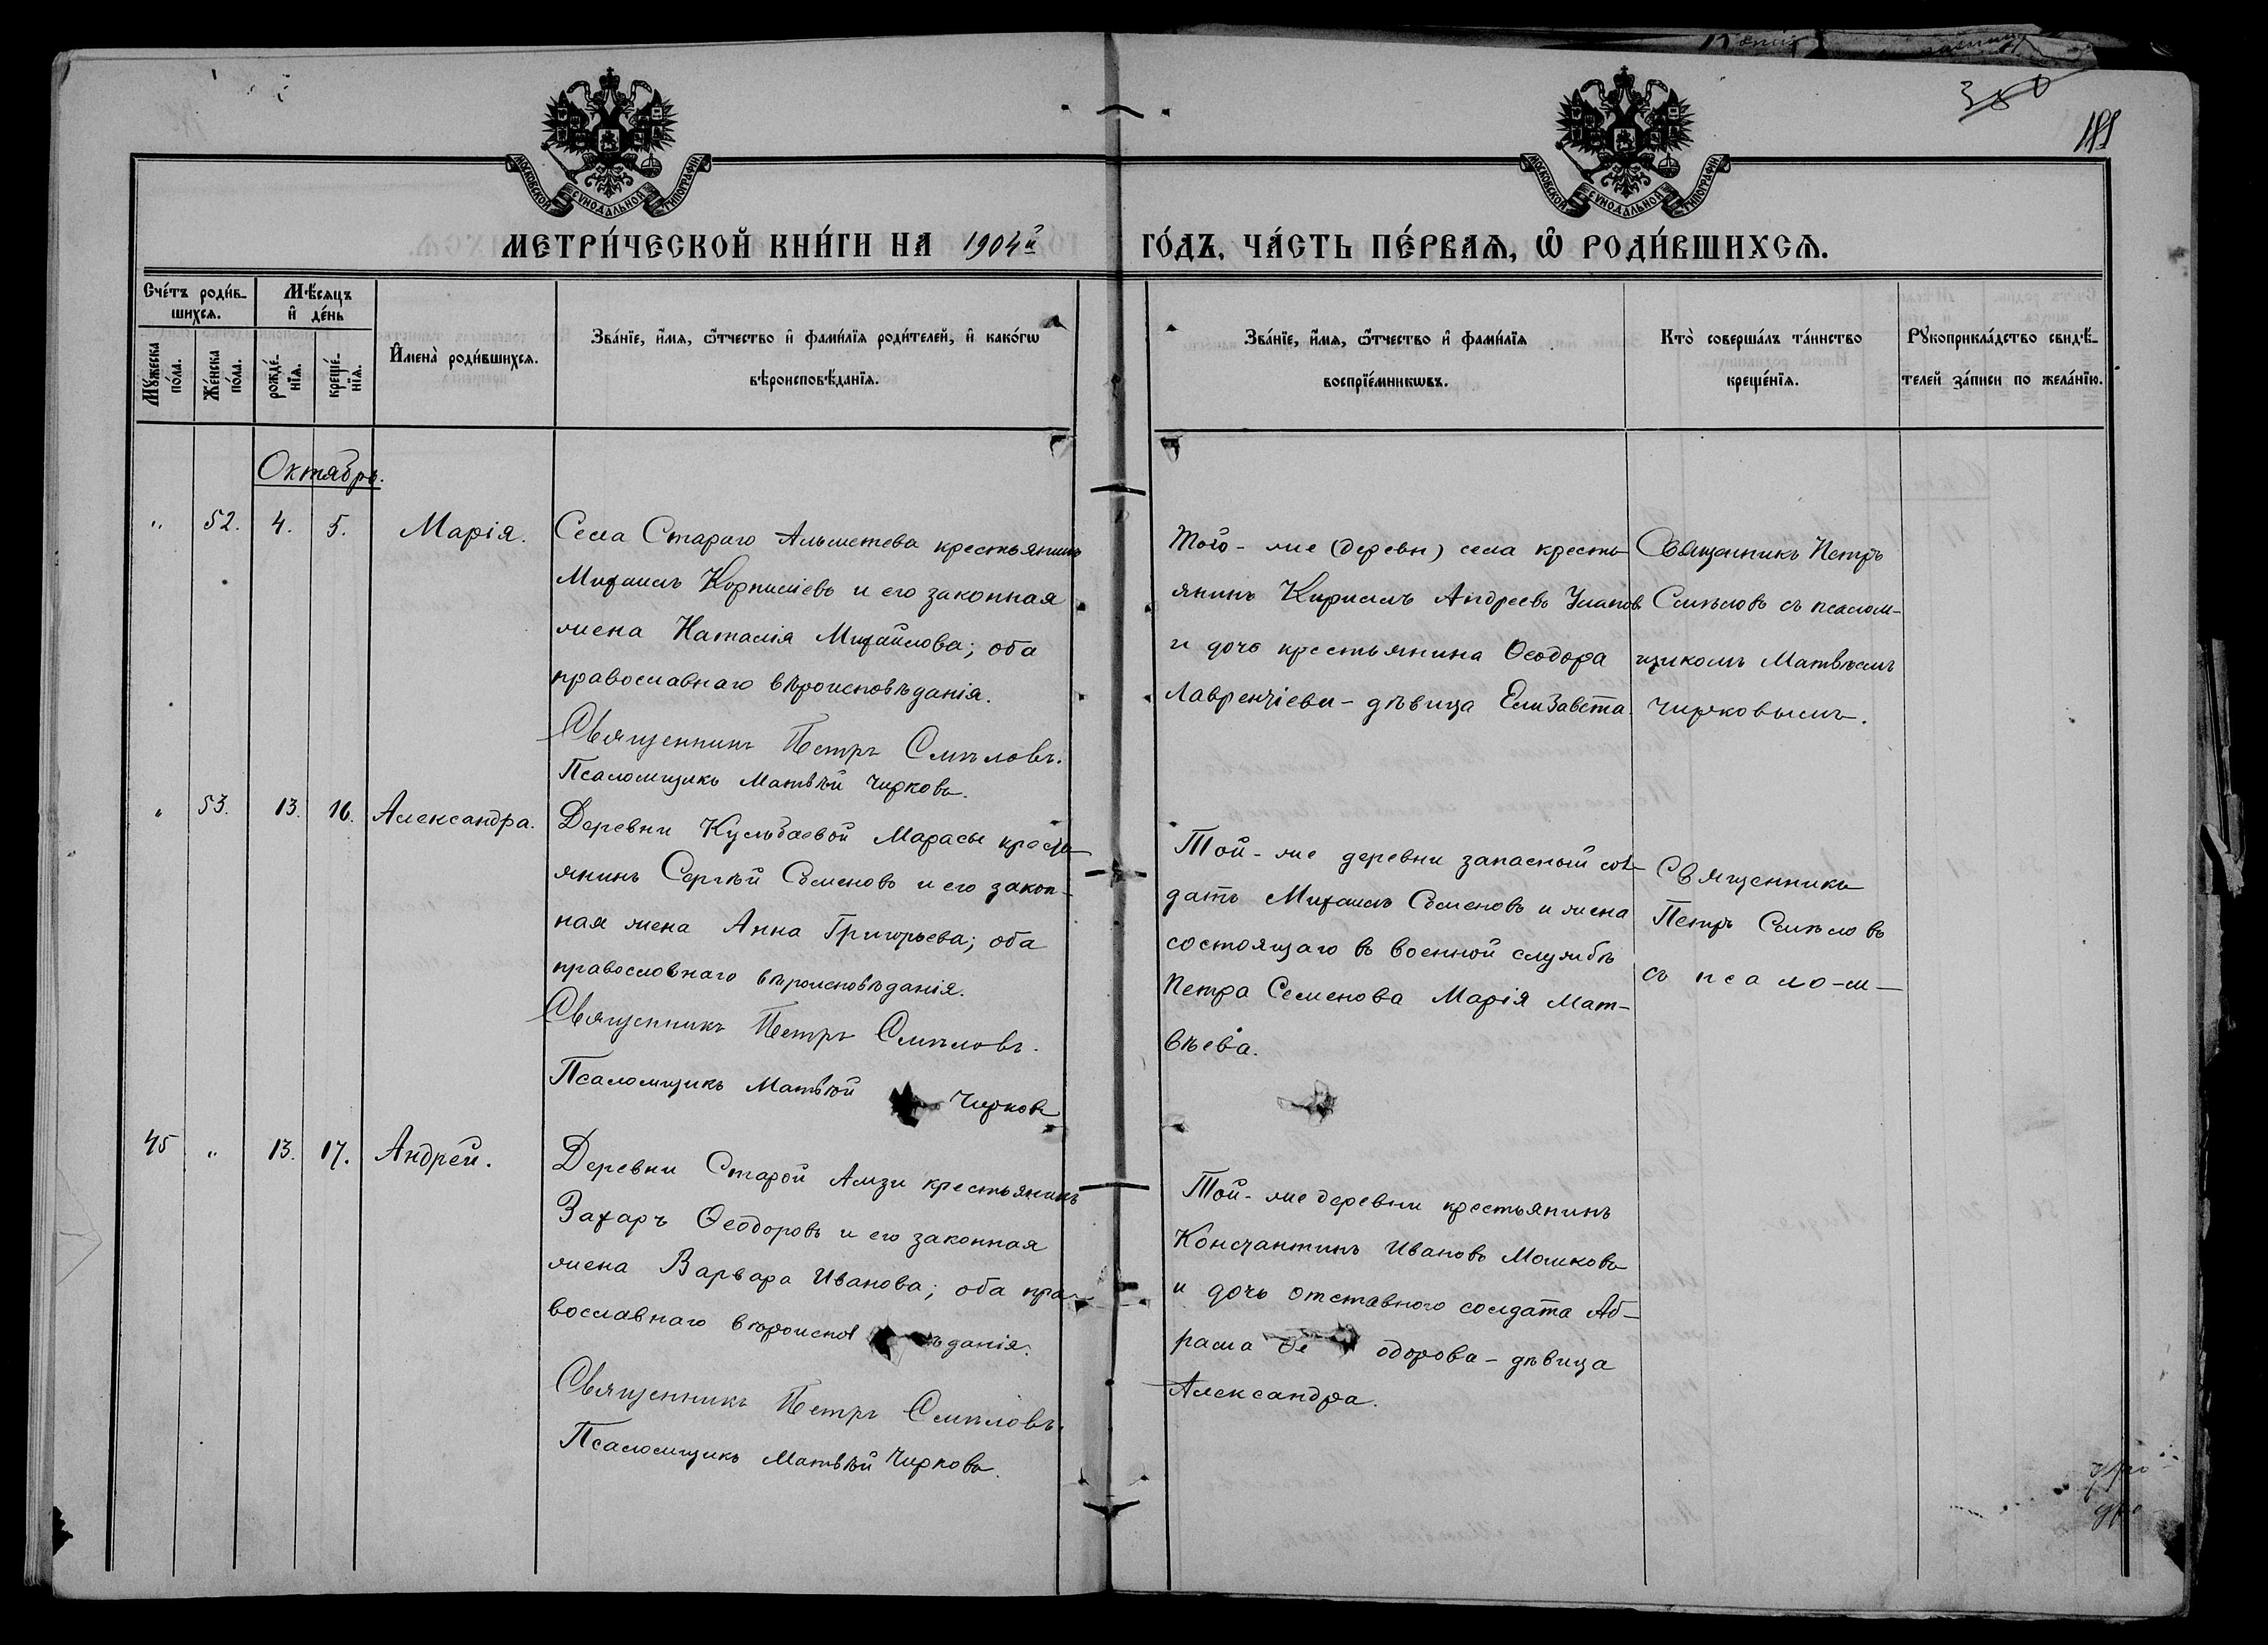 350
181
МОСКОВСКОЙ СѴНОДАЛЬНОЙ ТИПОГРАФІИ
МОСКОВСКОЙ СѴНОДАЛЬНОЙ ТИПОГРАФІИ
МЕТРИ́ЧЕСКОЙ КНИ́ГИ НА 1904й ГО́ДЪ, ЧА́СТЬ ПЕ́РВАѦ, Ѽ РОДИ́ВШИХСѦ.
Сче́тъ роди́в-
шихсѧ.
Мѣ́сяцъ
и҆ де́нь
Мꙋ́жеска
по́ла.
Же́нска
по́ла.
рожде́-
нїѧ.
креще́-
нїѧ.
И҆мена̀ роди́вшихсѧ.
Зва́нїе, и҆́мѧ, ѻ҆́тчество и҆ фами́лїѧ роди́телей, и҆ како́гѡ
вѣроисповѣ́данїѧ.
Зва́нїе, и҆́мѧ, ѻ҆́тчество и҆ фами́лїѧ
воспрїе́мникѡвъ.
Кто̀ соверша́лъ та́инство
креще́нїѧ.
Рꙋкоприкла́дство свидѣ́-
телей за́писи по жела́нїю.
Октябрь.
" 52. 4. 5. Марія.
Села Стараго Альметева крестьянинъ
Михаилъ Корнилiевъ и его законная
жена Наталія Михайлова; оба
православнаго вѣроисповѣданія.
Священникъ Петръ Смѣловъ.
Псаломщикъ Матвѣй Чирковъ.
Того-же (деревн) села кресть-
янинъ Кириллъ Андреевъ Улановъ
и дочь крестьянина Ѳеодора
Лавренчіева - дѣвица Елизавета.
Священникъ Петръ
Смѣловъ съ псалом-
щикомъ Матвѣемъ
Чирковымъ.
" 53. 13. 16. Александра.
Деревни Кульбаевой Марасы кресть-
янинъ Сергѣй Семеновъ и его закон-
ная жена Анна Григорьева; оба
православнаго вѣроисповѣданія.
Священникъ Петръ Смѣловъ.
Псаломщикъ Матвѣй Чирковъ
Той-же деревни запасный сол-
датъ Михаилъ Семеновъ и жена
состоящаго въ военной службѣ
Петра Семенова Марія Мат-
вѣева.
Священникъ
Петръ Смѣловъ
съ псало-м-
45 " 13. 17. Андрей.
Деревни Старой Амзи крестьянинъ
Захаръ Ѳеодоровъ и его законная
жена Варвара Иванова; оба пра-
вославнаго вѣроисповѣданія.
Священникъ Петръ Смѣловъ.
Псаломщикъ Матвѣй Чирковъ.
Той-же деревни крестьянинъ
Константинъ Ивановъ Мошковъ
и дочь отставного солдата Аб-
рама Ѳеодорова - дѣвица
Александра.